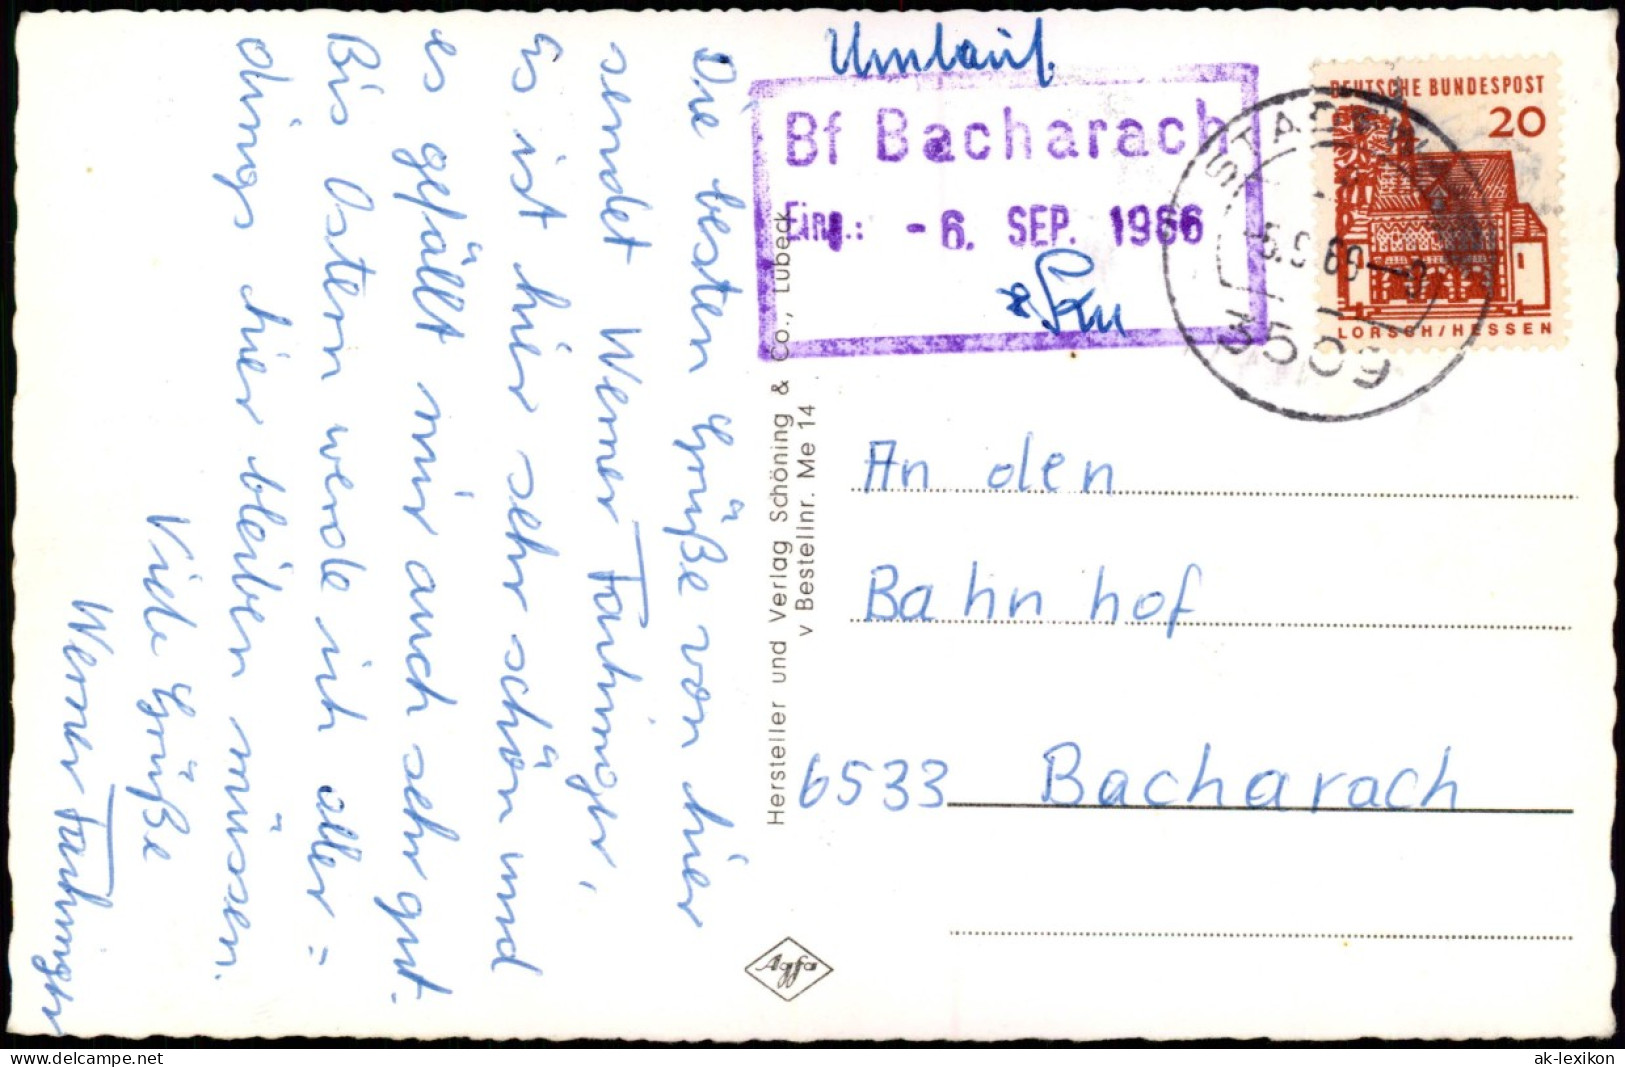 Die besten Grüße von hier
sendet Werner Fahringer,
Es ist hier sehr schön und
es gefällt mir auch sehr gut.
Bis Ostern werde ich aller=
dings hier bleiben müssen.
Viele Grüße
Werner Fahringer
Hersteller und Verlag Schöning & Co., Lübeck
v Bestellnr. Me 14
Agfa
Umlauf.
Bf Bacharach
Eing.: - 6. SEP. 1966
DEUTSCHE BUNDESPOST
20
LORSCH/HESSEN
3509
An den
Bahnhof
6533 Bacharach
ak-lexikon
delcampe.net